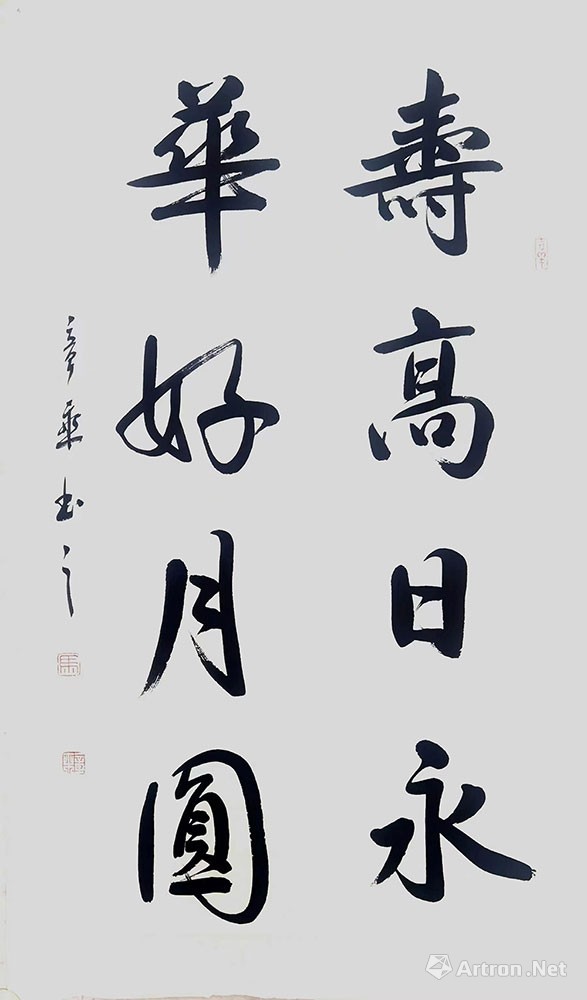 壽高日永
華好月圓
章乘书之
馬
Artron.Net